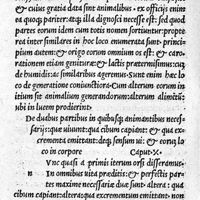 & cuius gratia data sint animalibus. ex officijs enim
ea quoq; pariter: atq; illa dignosci necesse est: sed quod
partes eorum idem cum totis nomen sortiuntur: propte
rea inter similares in hoc loco enumerata sint: princi
pium autem: & origo eorum omnium os est: & caro
rationem etiam geniturae: & lactis praetermisimus: cu
de humidis: ac similaribus ageremus. Sunt enim haec lo
co de generatione conuenientiora. altera enim initium
eorum sunt: quae generantur: alterum alimentu: sub
ubi in lucem prodierint
De duabus partibus in quibusq; animantibus necef
sarijs: una: uiuunt: qua cibum capiant: & qua ex
crementa emittant: deq; sensum ui: & eorũ q;
lo in corpore Caput X.
Vnc quasi a primis iterum orsi differamus.
n In omnibus uita praeditis: & perfectis par
tes maxime necessariae duae sunt: altera: qua
cibum capiant: altera: qua excrementum emittant: non